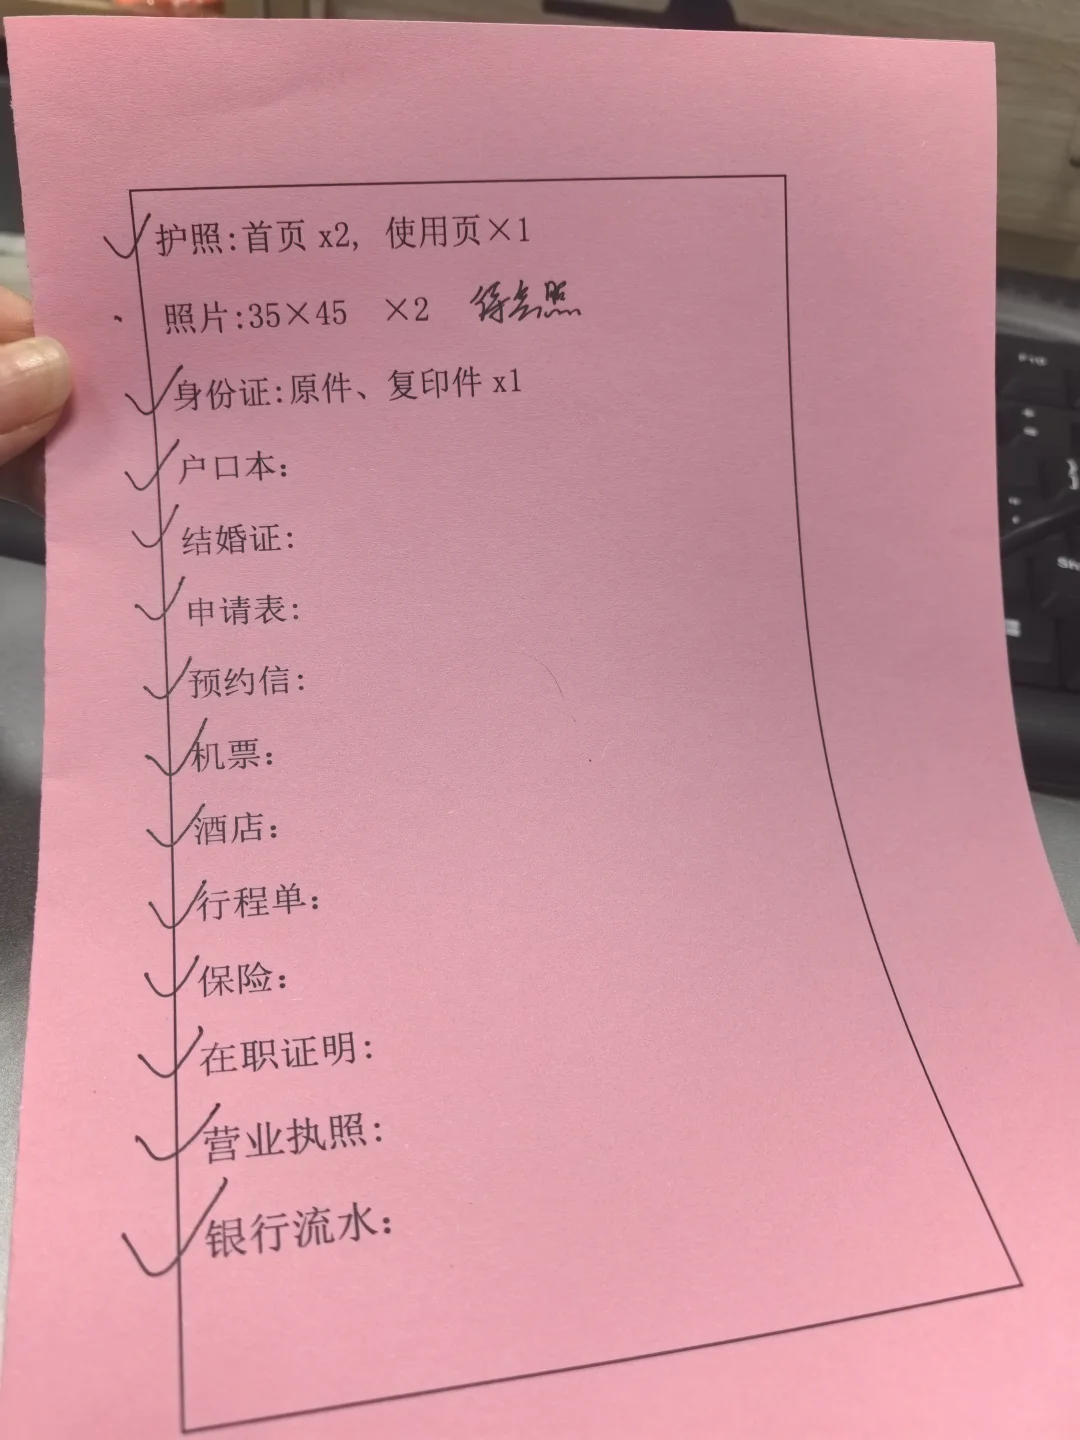 护照:首页 x2, 使用页×1
照片:35×45 ×2 得去照
身份证:原件、复印件 x1
户口本:
结婚证:
申请表:
预约信:
机票:
酒店:
行程单:
保险:
在职证明:
营业执照:
银行流水: